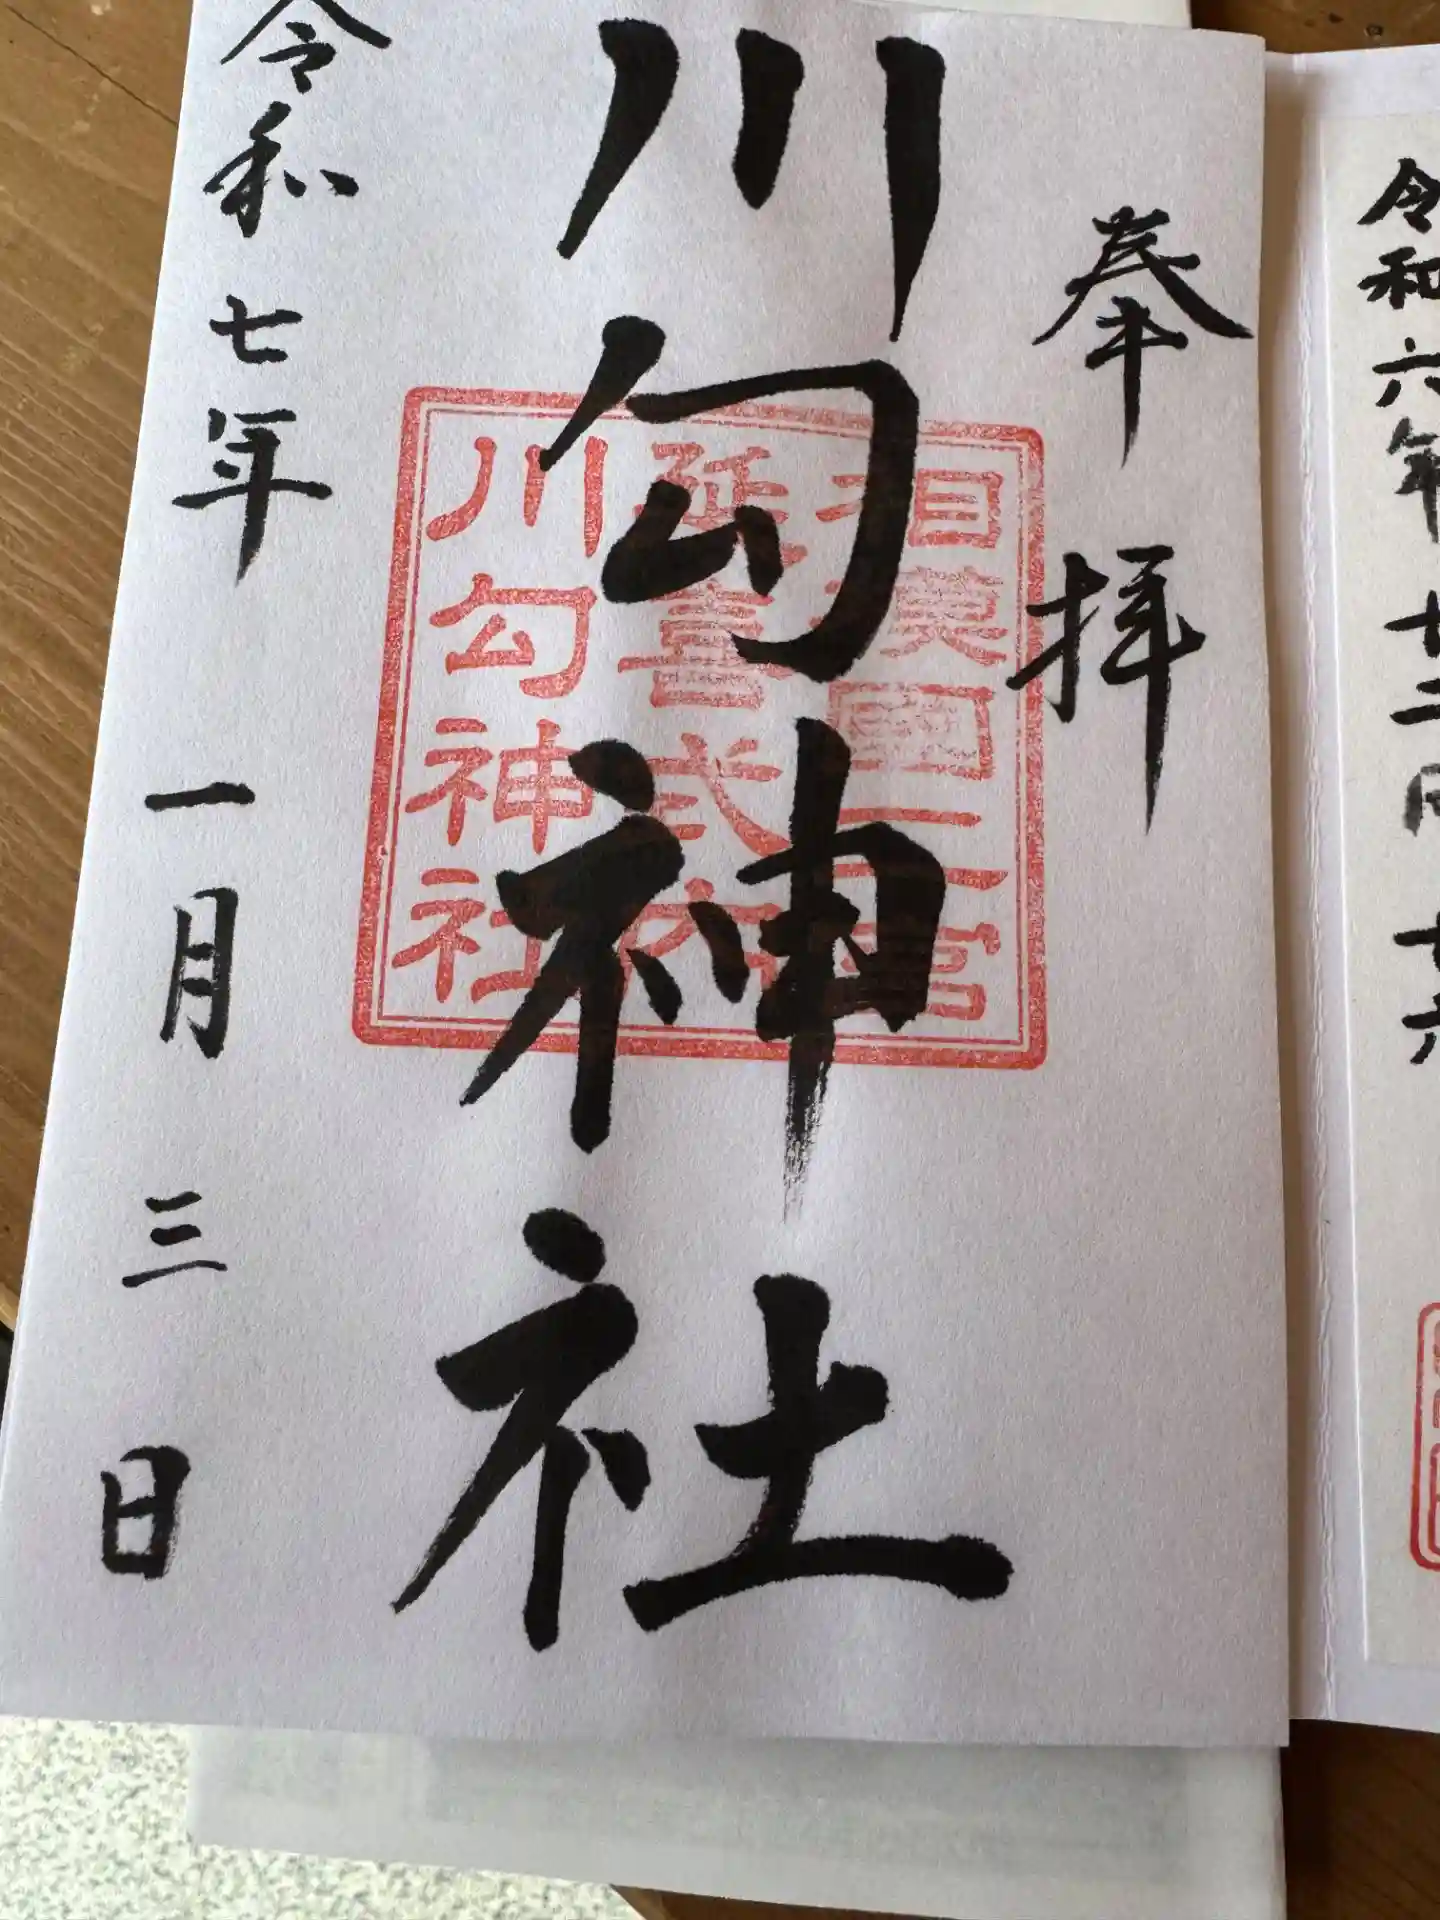 令和六年
十二月
十六
奉拝
川勾神社
相模国二之宮
延喜式内
川勾神社
令和七年一月三日